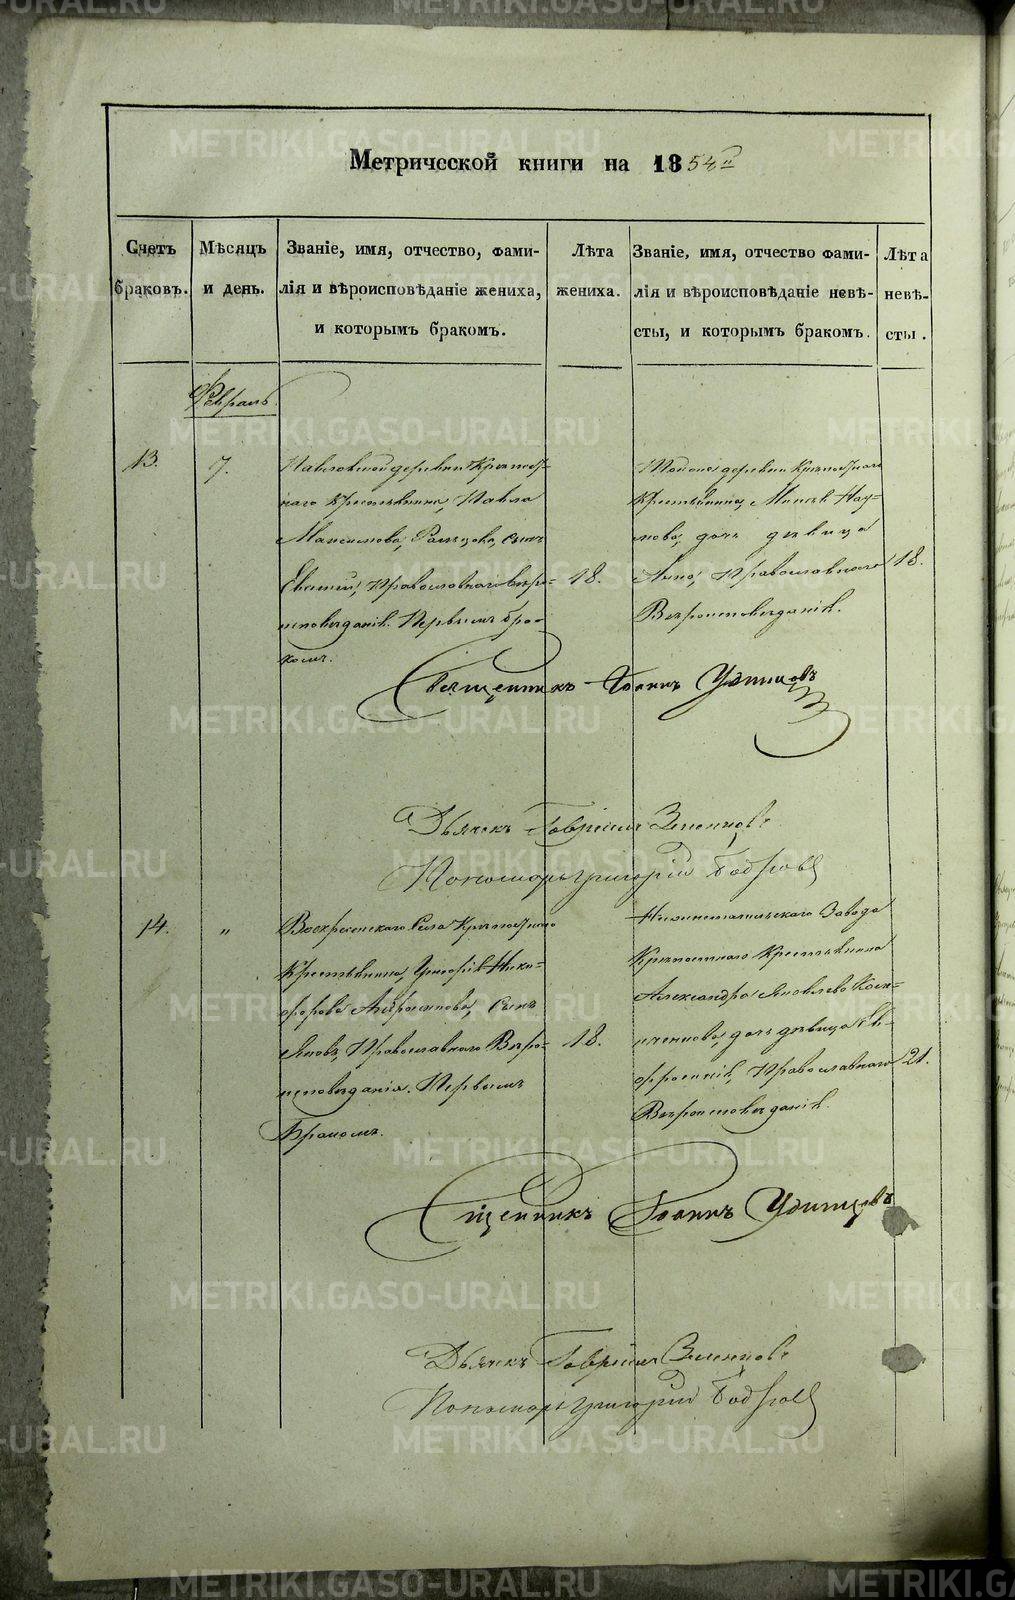 Метрической книги на 1854й
Счетъ браковъ.
Мѣсяцъ и день.
Званіе, имя, отчество, фамилія и вѣроисповѣданіе жениха, и которымъ бракомъ.
Лѣта жениха.
Званіе, имя, отчество фамилія и вѣроисповѣданіе невѣсты, и которымъ бракомъ.
Лѣта невѣсты.
Февраль
13.
7.
Павловской деревни Крѣпост-
наго Крестьянина, Павла
Максимова, сынъ
Евгеній, Православнаго Вѣро-
исповѣданія. Первымъ бра-
комъ.
18.
Той же деревни Крѣпостнаго
Крестьянина, Нау-
мова, дочь дѣвица
Анна, Православнаго
Вѣроисповѣданія.
18.
Священникъ Іоаннъ Удинцовъ
Дьячекъ Гавріилъ
Пономарь Григорій
14.
"
Воскресенскаго Села Крѣпостнаго
Крестьянина, Григорія Ники-
форова сынъ
Яковъ, Православнаго Вѣро-
исповѣданія. Первымъ
Бракомъ.
18.
Нижнетагильскаго Завода
Крѣпостнаго Крестьянина
Александра Яковлева
дочь дѣвица Ев-
фросинія, Православнаго
Вѣроисповѣданія.
21.
Священникъ Іоаннъ Удинцовъ
Дьячекъ Гавріилъ
Пономарь Григорій
METRIKI.GASO-URAL.RU